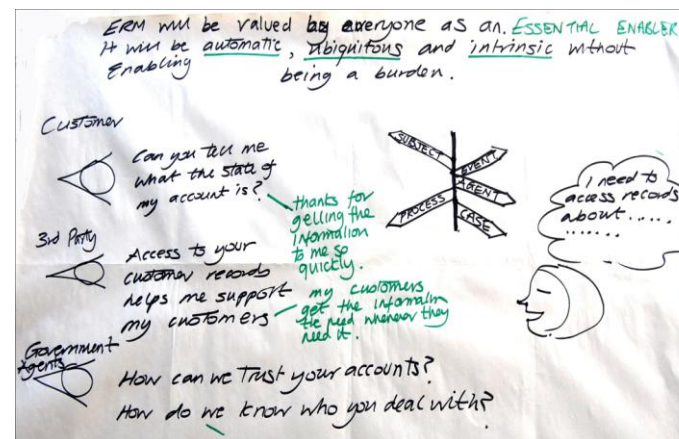 ERM will be valued by everyone as an. ESSENTIAL ENABLER
It will be automatic, ubiquitous and intrinsic without
Enabling being a burden.
Customer
Can you tell me
what the state of
my account is?
thanks for
getting the
information
to me so
quickly.
3rd Party
Access to your
customer records
helps me support
my customers
my customers
get the information
the need whenever they
need it.
Government
Agents
How can we Trust your accounts?
How do we know who you deal with?
SUBJECT
EVENT
AGENT
PROCESS
CASE
I need to
access records
about.....
.......